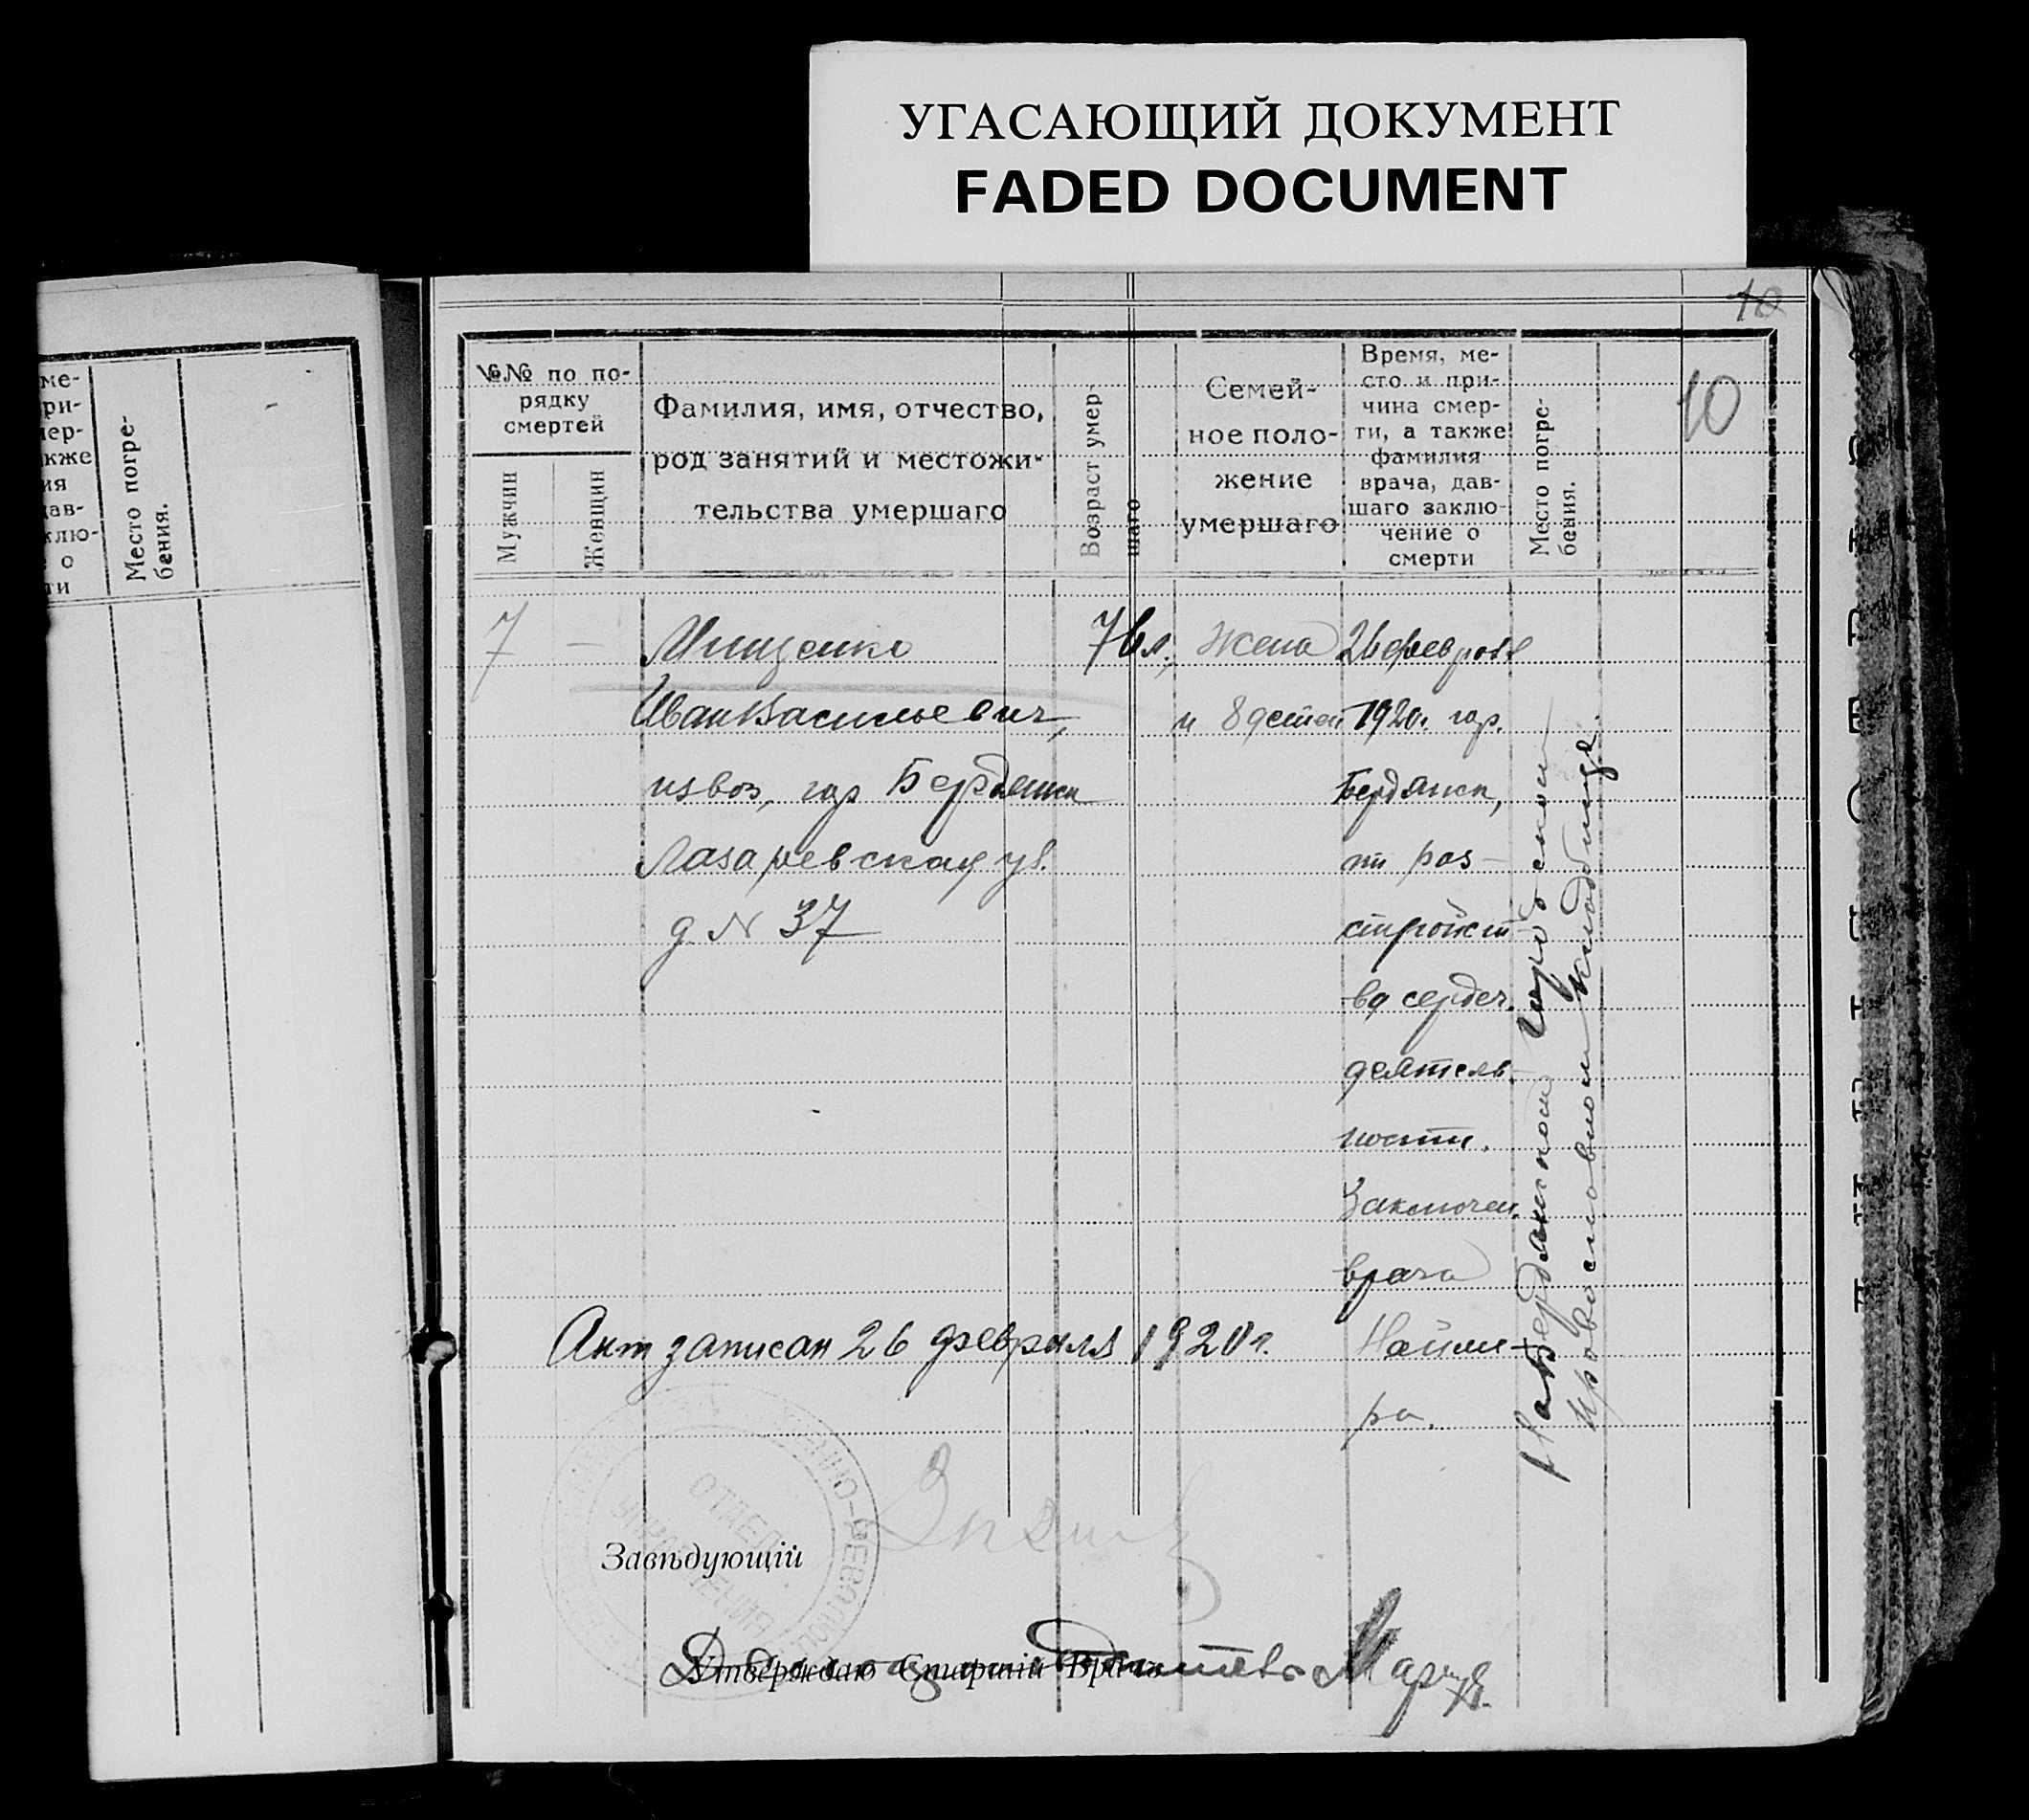 УГАСАЮЩИЙ ДОКУМЕНТ
FADED DOCUMENT
10
10
ме-
ри-
мер-
кже
ия
дав-
клю-
о
ти
Место погре-
бения.
№№ по по-
рядку
смертей
Мужчин
Женщин
Фамилия, имя, отчество,
род занятий и местожи-
тельства умершаго
Возраст умер-
шаго
Семей-
ное поло-
жение
умершаго
Время, ме-
сто и при-
чина смер-
ти, а также
фамилия
врача, дав-
шаго заклю-
чение о
смерти
Место погре-
бения.
7 —
Мищенко
Иван Васильевич,
извоз, гор Бердянск
Лазаревская ул.
д. N 37
76 л,
жена
и 8 детей
26 февраля
1920г. гор.
Бердянск,
от раз-
стройст-
ва сердеч.
деятель-
ности.
Заключен.
врача
Найше-
ра.
На Бердянском городском
православном кладбище.
Акт записан 26 февраля 1920г.
ОТДЕЛ
УПРАВЛЕНИЯ
Завѣдующій
Утверждаю Старшій Врачъ